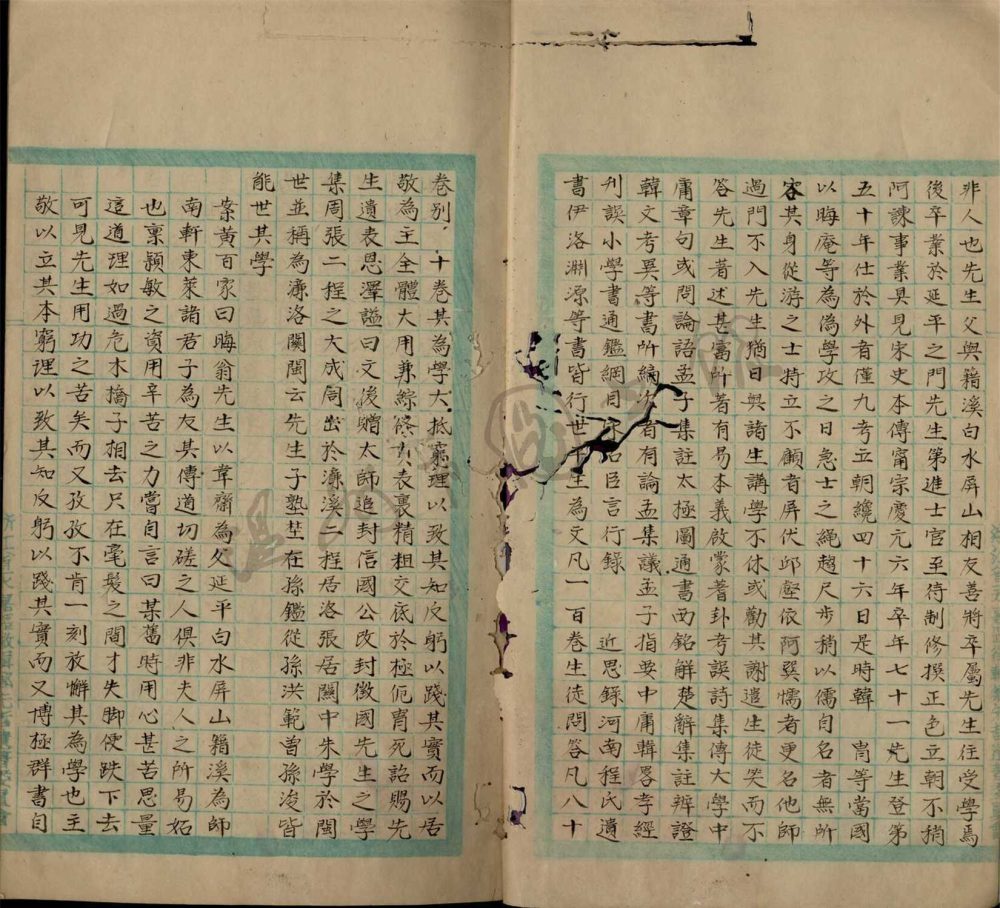 非人也先生父與籍溪白水屏山相友善將卒屬先生往受學焉
後卒業於延平之門先生第進士官至待制修撰正色立朝不稍
阿諛事業具見宋史本傳甯宗慶元六年卒年七十一先生登第
五十年仕於外者僅九考立朝纔四十六日是時韓 胄等當國
以晦庵等為偽學攻之日急士之繩趨尺步稍以儒自名者無所
容其身從游之士特立不顧者屏伏邱壑依阿巽懦者更名他師
過門不入先生猶日與諸生講學不休或勸其謝遣生徒笑而不
答先生著述甚富所著有易本義啟蒙蓍卦考誤詩集傳大學中
庸章句或問論語孟子集註太極圖通書西銘解楚辭集註辨證
韓文考異等書所編次者有論孟集議孟子指要中庸輯畧孝經
刊誤小學書通鑑綱目 名臣言行錄 近思錄河南程氏遺
書伊洛淵源等書皆行世 生為文凡一百卷生徒問答凡八十
卷別 十卷其為學大抵窮理以致其知反躬以踐其實而以居
敬為主全體大用兼綜條 表裏精粗交底於極侂胄死詔賜先
生遺表恩澤謚曰文後贈太師追封信國公改封徽國先生之學
集周張二程之大成周出於濂溪二程居洛張居關中朱學於閩
世並稱為濂洛關閩云先生子塾埜在孫鑑從孫洪範曾孫浚皆
能世其學
案黃百家曰晦翁先生以韋齋為父延平白水屏山籍溪為師
南軒東萊諸君子為友其傳道切磋之人俱非夫人之所易姤
也稟穎敏之資用辛苦之力嘗自言曰某舊時用心甚苦思量
這道理如過危木橋子相去只在毫髮之間才失脚便跌下去
可見先生用功之苦矣而又孜孜不肯一刻放懈其為學也主
敬以立其本窮理以致其知反躬以踐其實而又博極群書自